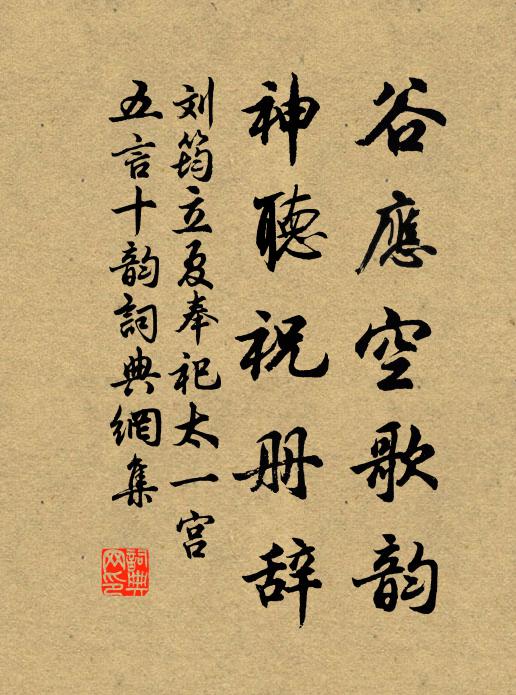 谷應空歌韵
神聽祝册辞
刘筠立夏奉祀太一宫
五言十韵詞典網集
詞典網印